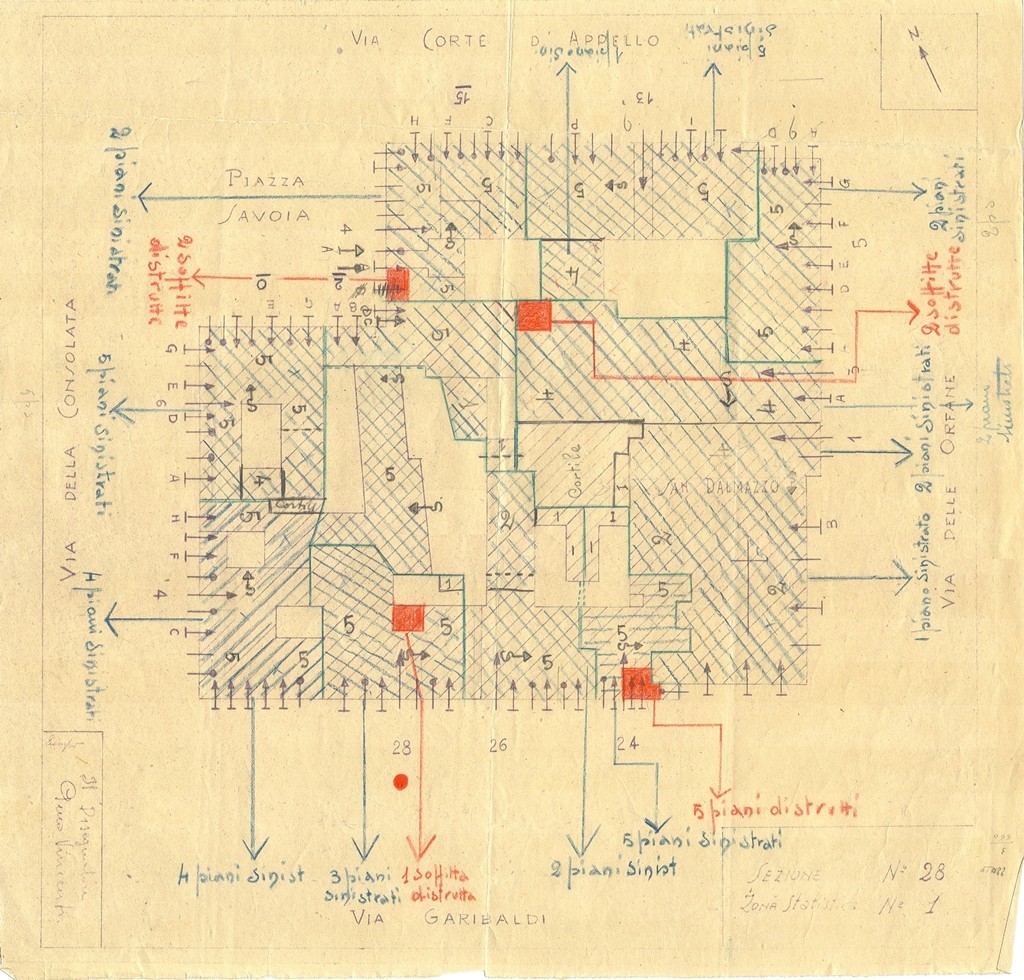 VIA CORTE D'APPELLO
1 piano sin.
5 piani
sinistrati
N
15
13
9
H
F
C
P
I
9
D
A
2 piani sinistrati
PIAZZA
SAVOIA
2 soffitte
distrutte
4
A
10
10
5
5
5
S
5
5
S
5
5
4
S
5
G
F
5
E
D
2 piani
sinistrati
2 soffitte
distrutte
VIA DELLA CONSOLATA
5 piani sinistrati
G
E
6
D
A
H
F
4
C
4 piani sinistrati
5
5
5
S
4
5
S
5
5
5
S
5
S
5
4
4
4
S
3
A
1
B
2 piani sinistrati
2 piani
sinistrati
1 piano sinistrato
VIA DELLE ORFANE
Cortile
Cortile
SAN DALMAZZO
2
2
2
I
1
I
1
5
S
5
S
5
5
5
S
28
26
24
5 piani distrutti
5 piani sinistrati
4 piani sinist.
3 piani
sinistrati
1 soffitta
distrutta
2 piani sinist
VIA GARIBALDI
SEZIONE No 28
Zona Statistica No 1
Il Disegnatore